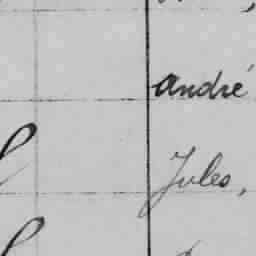 André
Jules,